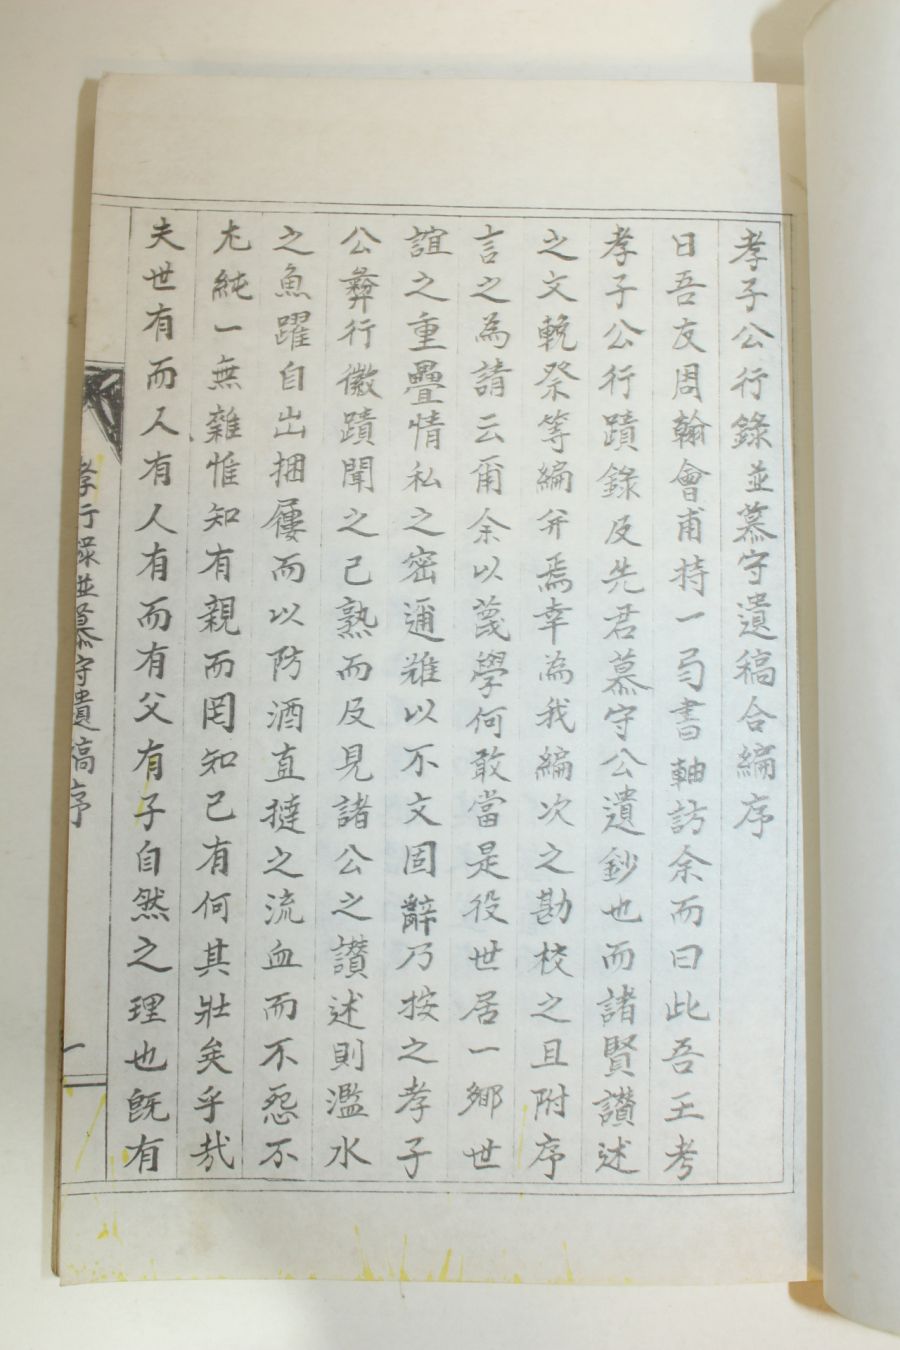 孝子公行錄並慕守遺稿合編序
日吾友周翰會甫持一弓書軸訪余而曰此吾王考
孝子公行蹟錄及先君慕守公遺鈔也而諸賢讚述
之文輓祭等編弁焉幸為我編次之勘校之且附序
言之為請云爾余以蔑學何敢當是役世居一鄉世
誼之重疊情私之密邇難以不文固辭乃按之孝子
公彛行徽蹟聞之已熟而及見諸公之讚述則濫水
之魚躍自出捆屨而以防酒直撻之流血而不怨不
尤純一無雜惟知有親而罔知己有何其壯矣乎哉
夫世有而人有人有而有父有子自然之理也旣有
孝行錄並慕守遺稿序
一